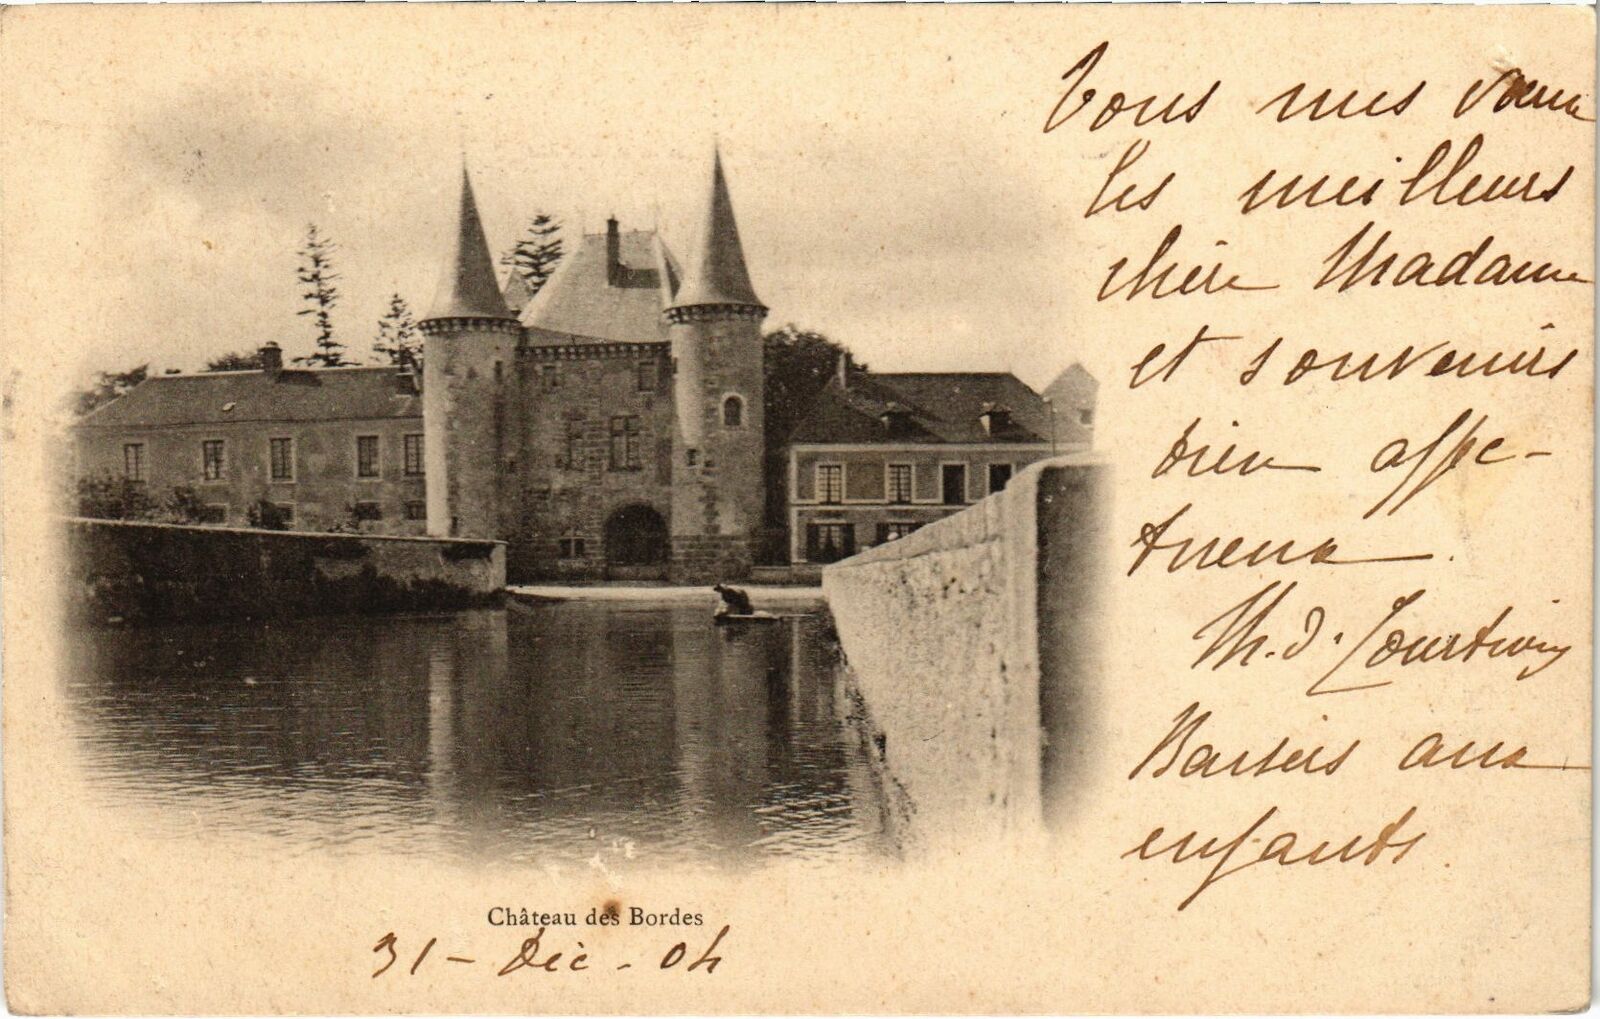 Tous mes vœux
les meilleurs
chère Madame
et souvenirs
bien affec-
tueux.
Baisers aux
enfants.
Château des Bordes
31 - Déc - 04